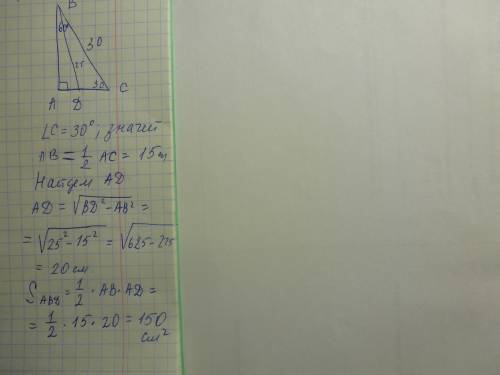 B
60°
30
25
30
A D C
∠C = 30°, значит
AB = 1/2 AC = 15 см
Найдем AD
AD = √(BD² - AB²) =
= √(25² - 15²) = √(625 - 225)
= 20 см
S_ABD = 1/2 · AB · AD =
= 1/2 · 15 · 20 = 150
см²